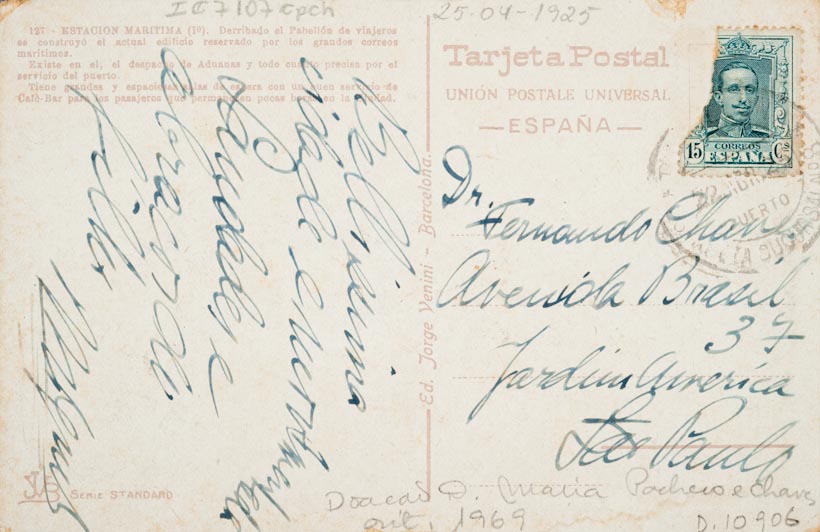 IE7107cpch
25-04-1925
127 - ESTACION MARITIMA (1º). Derribado el Pabellón de viajeros
se construyó el actual edificio reservado por los grandes correos
marítimos.
Existe en el, el despacho de Aduanas y todo cuanto precisa por el
servicio del puerto.
Tiene grandes y espaciosas salas de espera con un buen servicio de
Café-Bar para los pasajeros que permanecen pocas horas en la ciudad.
Bellissima
cidade e
Saudades e
abraços do
Tarjeta Postal
UNIÓN POSTALE UNIVERSAL
ESPAÑA
15 CORREOS Cs
ESPAÑA
PUERTO
Dr.
Fernando Chaves
Avenida Brasil
37
Jardim America
São Paulo
Ed. Jorge Venini - Barcelona.
JVB SERIE STANDARD
Doação D. Maria Pacheco e Chaves
out. 1969
D.10906